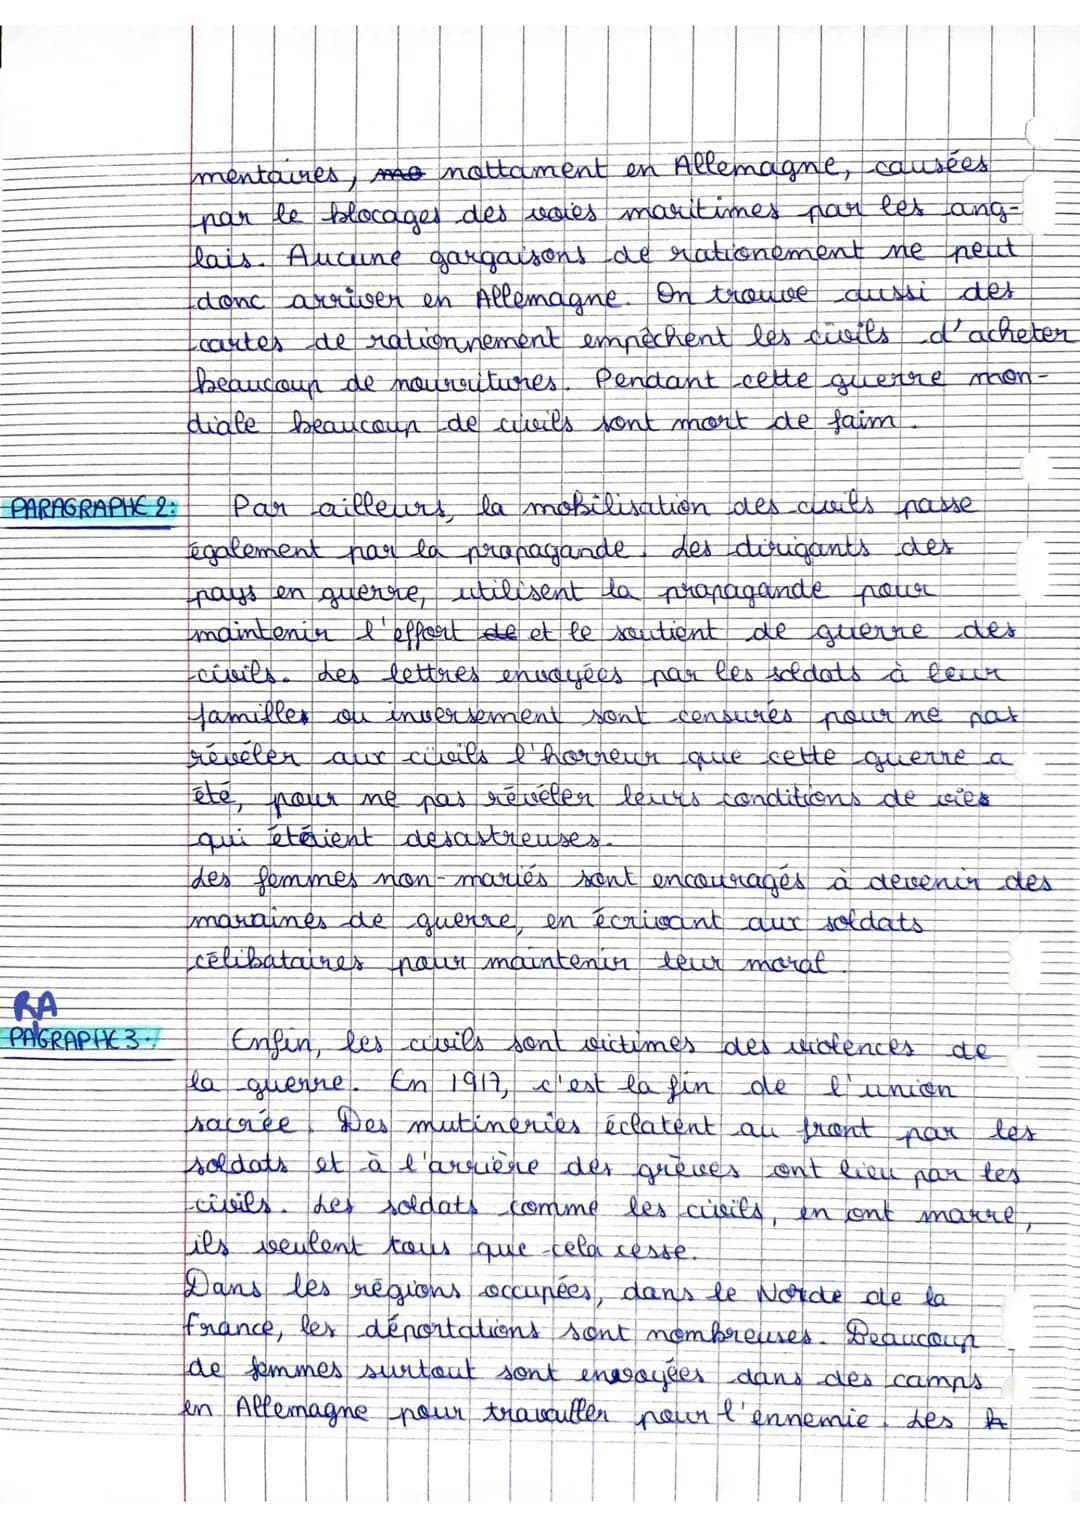 mentaires, nottament en Allemagne, causées
par le blocages des voies maritimes par les ang-
lais. Aucune gargaisons de rationement ne peut
donc arriver en Allemagne. On trouve aussi des
cartes de rationnement empêchent les civils d'acheter
beaucoup de nourritures. Pendant cette guerre mon-
diale beaucoup de civils sont mort de faim.
PARAGRAPHE 2:
Par ailleurs, la mobilisation des civils passe
également par la propagande. Les dirigants des
pays en guerre, utilisent la propagande pour
maintenir l'effort de et le soutient de guerre des
civils. Les lettres envoyées par les soldats à leur
familles ou inversement sont censurés pour ne pas
révéler aux civils l'horreur que cette guerre a
été, pour ne pas révéler leurs conditions de vies
qui étéient desastreuses.
Les femmes non-mariés sont encouragés à devenir des
maraines de guerre, en écrivant aux soldats
célibataires pour maintenir leur moral.
RA
PAGRAPHE 3:
Enfin, les civils sont victimes des violences de
la guerre. En 1917, c'est la fin de l'union
sacrée. Des mutineries éclatent au front par les
soldats et à l'arrière des grèves ont lieu par les
civils. Les soldats comme les civils, en ont marre,
ils veulent tous que cela cesse.
Dans les régions occupées, dans le Norde de la
france, les déportations sont nombreuses. Beaucoup
de femmes surtout sont envoyées dans des camps
en Allemagne pour travailler pour l'ennemie. Les